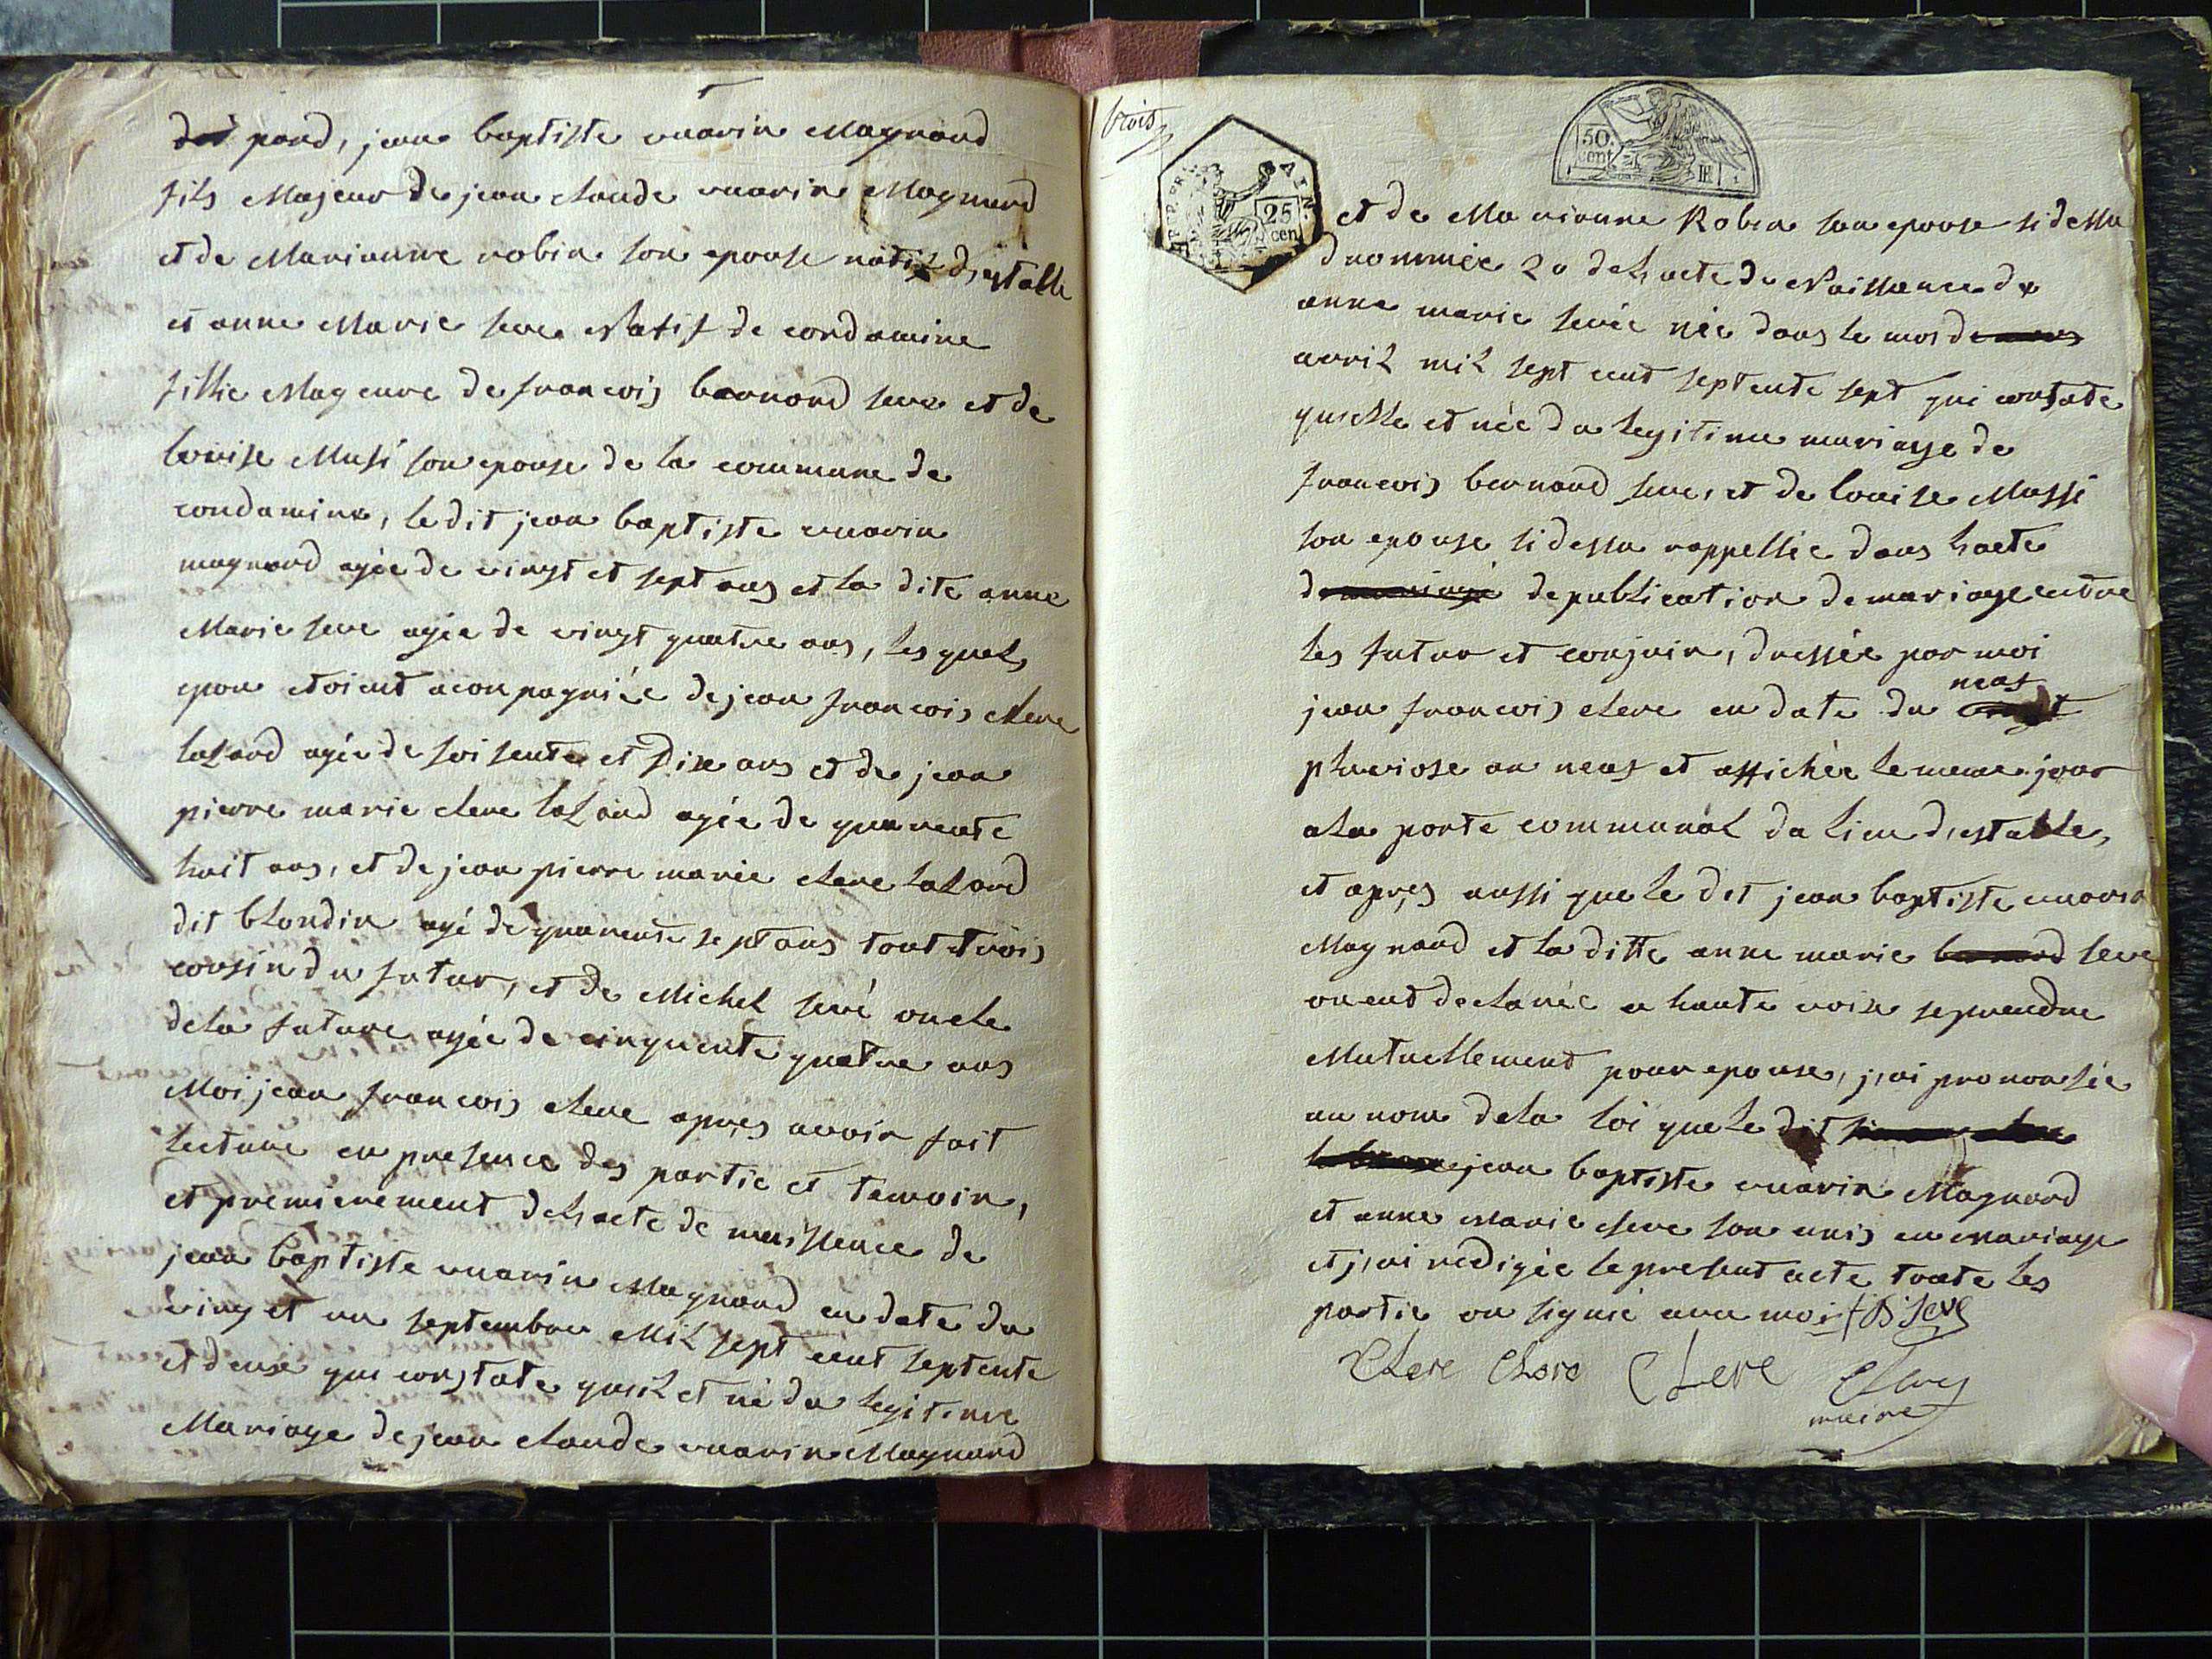 pard, jean baptiste vuarin Magnard
fils Majeur de jean claude vuarin Magnard
et de Marianne robin son epouse natif d'estable
et anne Marie seve Natif de condamine
fillie Mageure de francois bernard seve et de
louise Musi son epouse de la commune de
condamine, le dit jean baptiste vuarin
magnard agée de vingt et sept ans et la dite anne
Marie seve agée de vingt quatre ans, les quels
epou etoient acompagniée de jean francois clere
lalard agée de soisente et Dix ans et de jean
pierre marie clere lalard agée de quarente
huit ans, et de jean pierre marie clere lalard
dit blondin agé de quarente sept ans tout trois
cousin du futur, et de Michel sevé oncle
dela future agée de cinquente quatre ans
Moi jean francois clere apres avoir fait
lecture en presence des partie et temoin,
et premierement del'acte de naissence de
jean baptiste vuarin Magnard en date du
ving et un septembre Mil sept cent septente
et deux qui constate qu'il et né du legitime
Mariage de jean claude vuarin Magnard
trois
25 cen.
50. cent
et de Marianne Robin son epouse si dessu
dnommée 20 del'acte de Naissance de
anne marie sevée née dans le mois de
avril mil sept cent septente sept qui constate
qu'elle et née du legitime mariage de
francois bernard seve, et de louise Mussi
son epouse si dessu rappellée dans l'acte
de mariage de publication de mariage entre
les futur et conjoin, dressée par moi
neuf
jean francois clere en date du
pluviose an neuf et affichée le meme jour
a la porte communal du lieu d'estable,
et apres aussi que le dit jean baptiste vuarin
Magnard et la ditte anne marie bernard seve
on eut declarée a haute voix se prendre
Mutuellement pour epouse, j'ai prononsée
au nom dela loi que le dit
jean baptiste vuarin Magnard
et anne Marie seve son unis en mariage
et j'ai redigée le present acte toute les
partie on signié avec moi f B seve
Clere Clere Clere Clere
maire